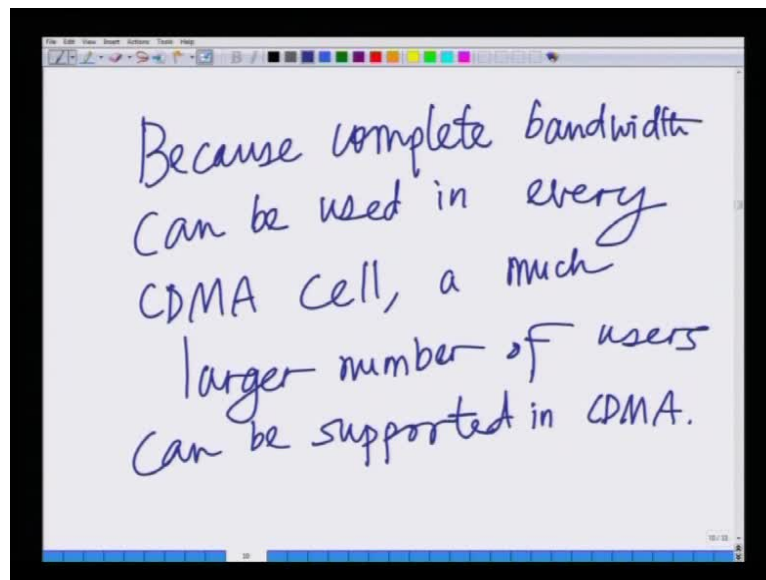 File Edit View Insert Actions Tools Help
Because complete bandwidth
can be used in every
CDMA cell, a much
larger number of users
can be supported in CDMA.
10